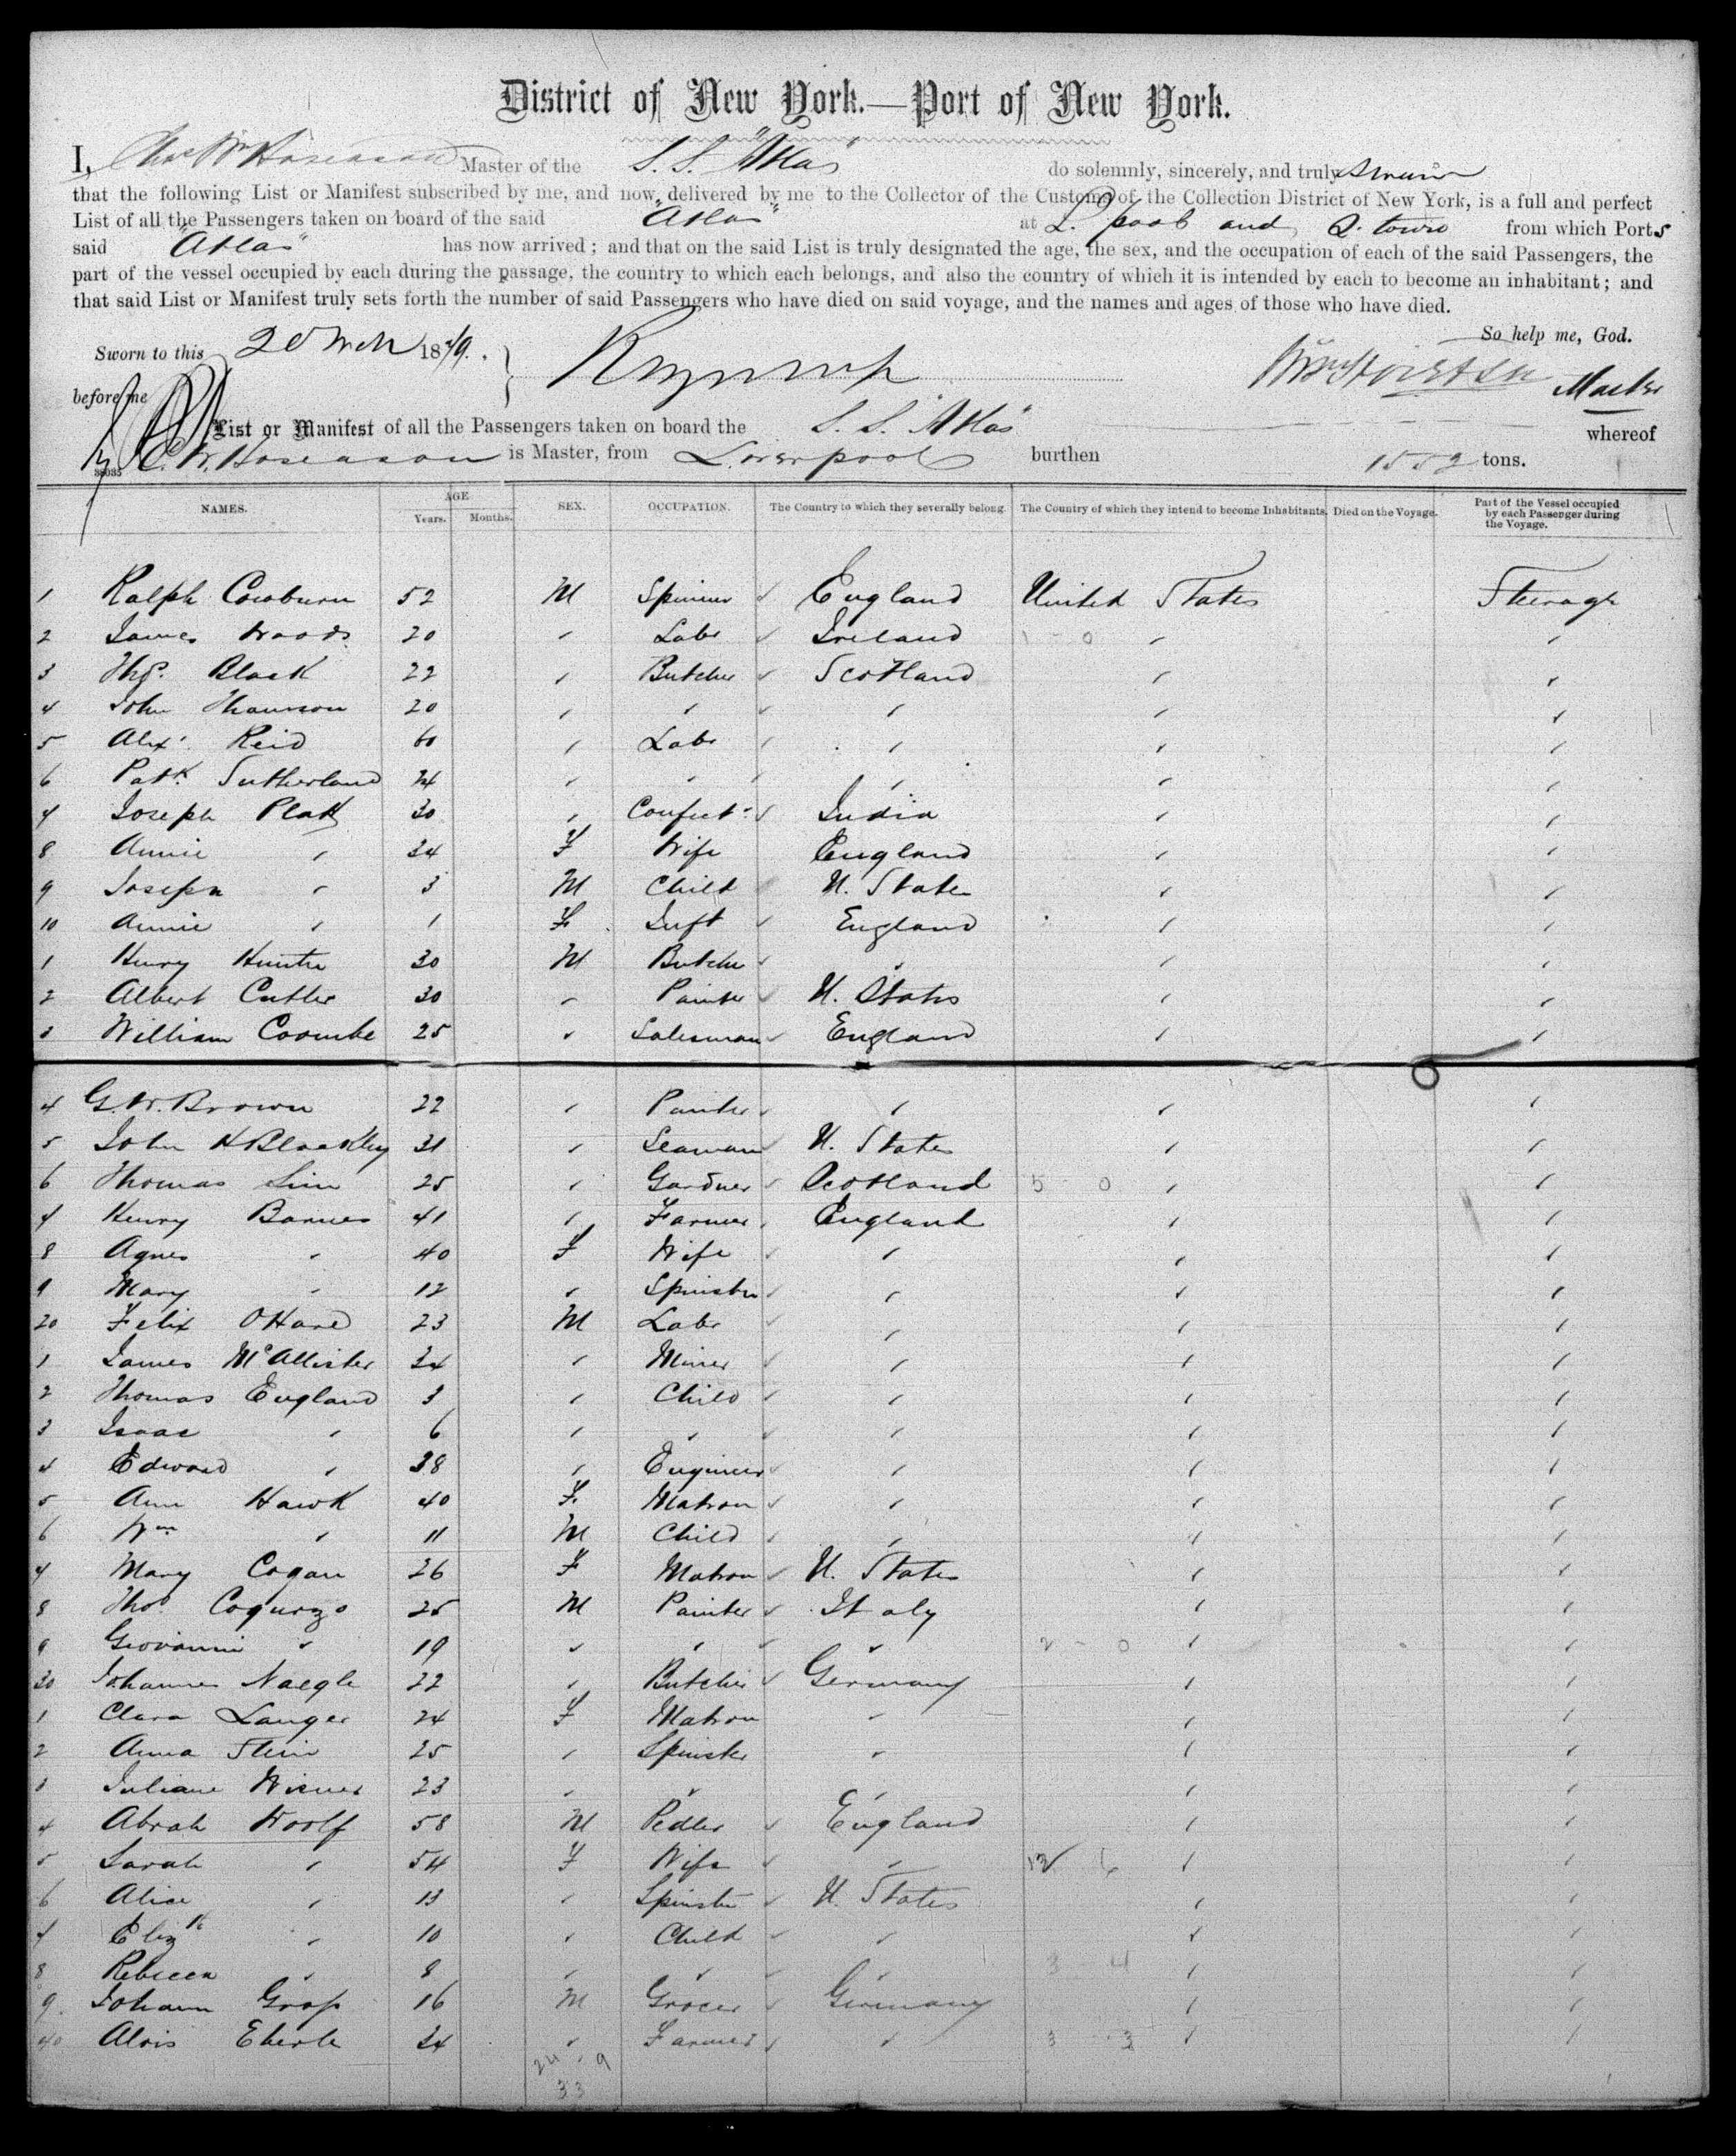 District of New York.—Port of New York.
I, Master of the S. S. "Atlas" do solemnly, sincerely, and truly swear
that the following List or Manifest subscribed by me, and now delivered by me to the Collector of the Customs of the Collection District of New York, is a full and perfect
List of all the Passengers taken on board of the said "Atlas" at L. pool and Q. town from which Ports
said "Atlas" has now arrived; and that on the said List is truly designated the age, the sex, and the occupation of each of the said Passengers, the
part of the vessel occupied by each during the passage, the country to which each belongs, and also the country of which it is intended by each to become an inhabitant; and
that said List or Manifest truly sets forth the number of said Passengers who have died on said voyage, and the names and ages of those who have died.
So help me, God.
Sworn to this 20 Mch 1879.
before me Master
List or Manifest of all the Passengers taken on board the S. S. "Atlas" whereof
C. W. Hoseason is Master, from Liverpool burthen 1552 tons.
NAMES. AGE Years. Months. SEX. OCCUPATION. The Country to which they severally belong. The Country of which they intend to become Inhabitants. Died on the Voyage. Part of the Vessel occupied by each Passenger during the Voyage.
1 Ralph Cowburn 52 M Spinner England United States Steerage
2 James Woods 20 " Labr Ireland 1 - 0 " "
3 Thos. Black 22 " Butcher Scotland " "
4 John Thomson 20 " " " " "
5 Alexr. Reid 60 " Labr " " "
6 Patk. Sutherland 24 " " " " "
7 Joseph Platt 30 " Confectr. India " "
8 Annie " 34 F Wife England " "
9 Joseph " 3 M Child U. States " "
10 Annie " 1 F Inft England " "
1 Henry Hunter 30 M Butcher " " "
2 Albert Cutler 30 " Painter U. States " "
3 William Coombe 25 " Salesman England " "
4 G. W. Brown 22 " Painter " " "
5 John H Blackley 31 " Seaman U. States " "
6 Thomas Sim 25 " Gardner Scotland 5 0 " "
7 Henry Barnes 41 " Farmer England " "
8 Agnes " 40 F Wife " " "
9 Mary " 12 " Spinster " " "
20 Felix OHare 23 M Labr " " "
1 James McAllister 34 " Miner " " "
2 Thomas England 3 " Child " " "
3 Isaac " 6 " " " " "
4 Edward " 38 " Engineer " " "
5 Ann Hawk 40 F. Matron " " "
6 Wm " 11 M Child " " "
7 Mary Cogan 26 F Matron U. States " "
8 Thos. 25 M Painter Italy " "
9 Giovanni " 19 " " " 2 - 0 " "
30 Johannes Naegle 22 " Butcher Germany " "
1 Clara Langer 24 F Matron " " "
2 Anna Stein 25 " Spinster " " "
3 Juliane Wiener 23 " " " " "
4 Abrah Woolf 58 M Pedler England " "
5 Sarah " 54 F Wife " 12 6 " "
6 Alice " 13 " Spinster U. States " "
7 Elizth " 10 " Child " " "
8 Rebecca " 8 " " " 3 4 " "
9 Johann Grop 16 M Grocer Germany " "
40 Alois Eberle 24 " Farmer " 3 3 " "
24 - 9
33